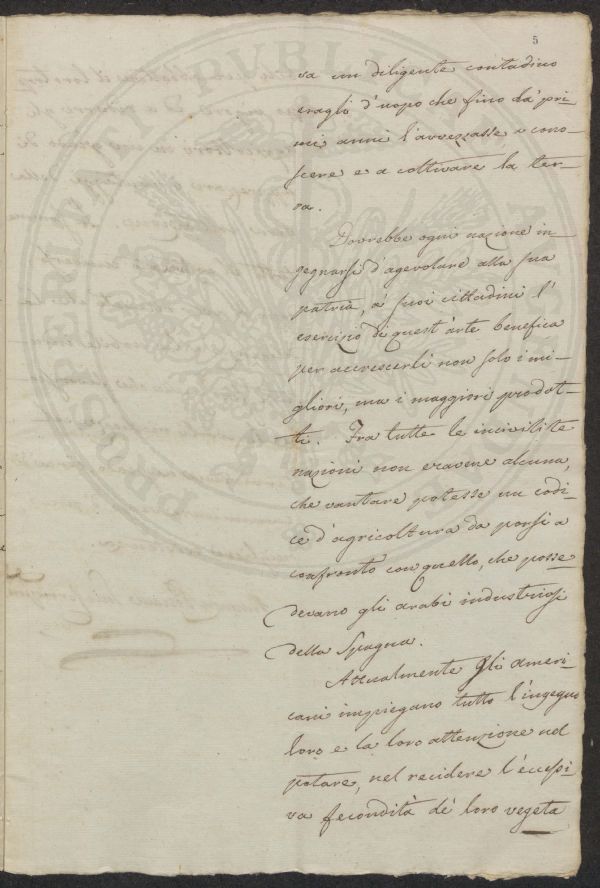 5
va un diligente contadino
eragli d'uopo che fino da' pri-
mi anni l'avvezzasse a cono-
scere e a coltivare la ter-
ra.
Dovrebbe ogni nazione in-
gegnarsi d'agevolare alla sua
patria, a' suoi cittadini l'
esercizio di quest'arte benefica
per accrescerli non solo i mi-
gliori, ma i maggiori prodot-
ti. Fra tutte le incivilite
nazioni non eravene alcuna,
che vantare potesse un codi-
ce d'agricoltura da porsi a
confronto con quello, che posse-
devano gli arabi industriosi
della Spagna.
Attualmente gli ameri-
cani impiegano tutto l'ingegno
loro e la loro attenzione nel
potare, nel recidere l'eccessi-
va fecondità de' loro vegeta